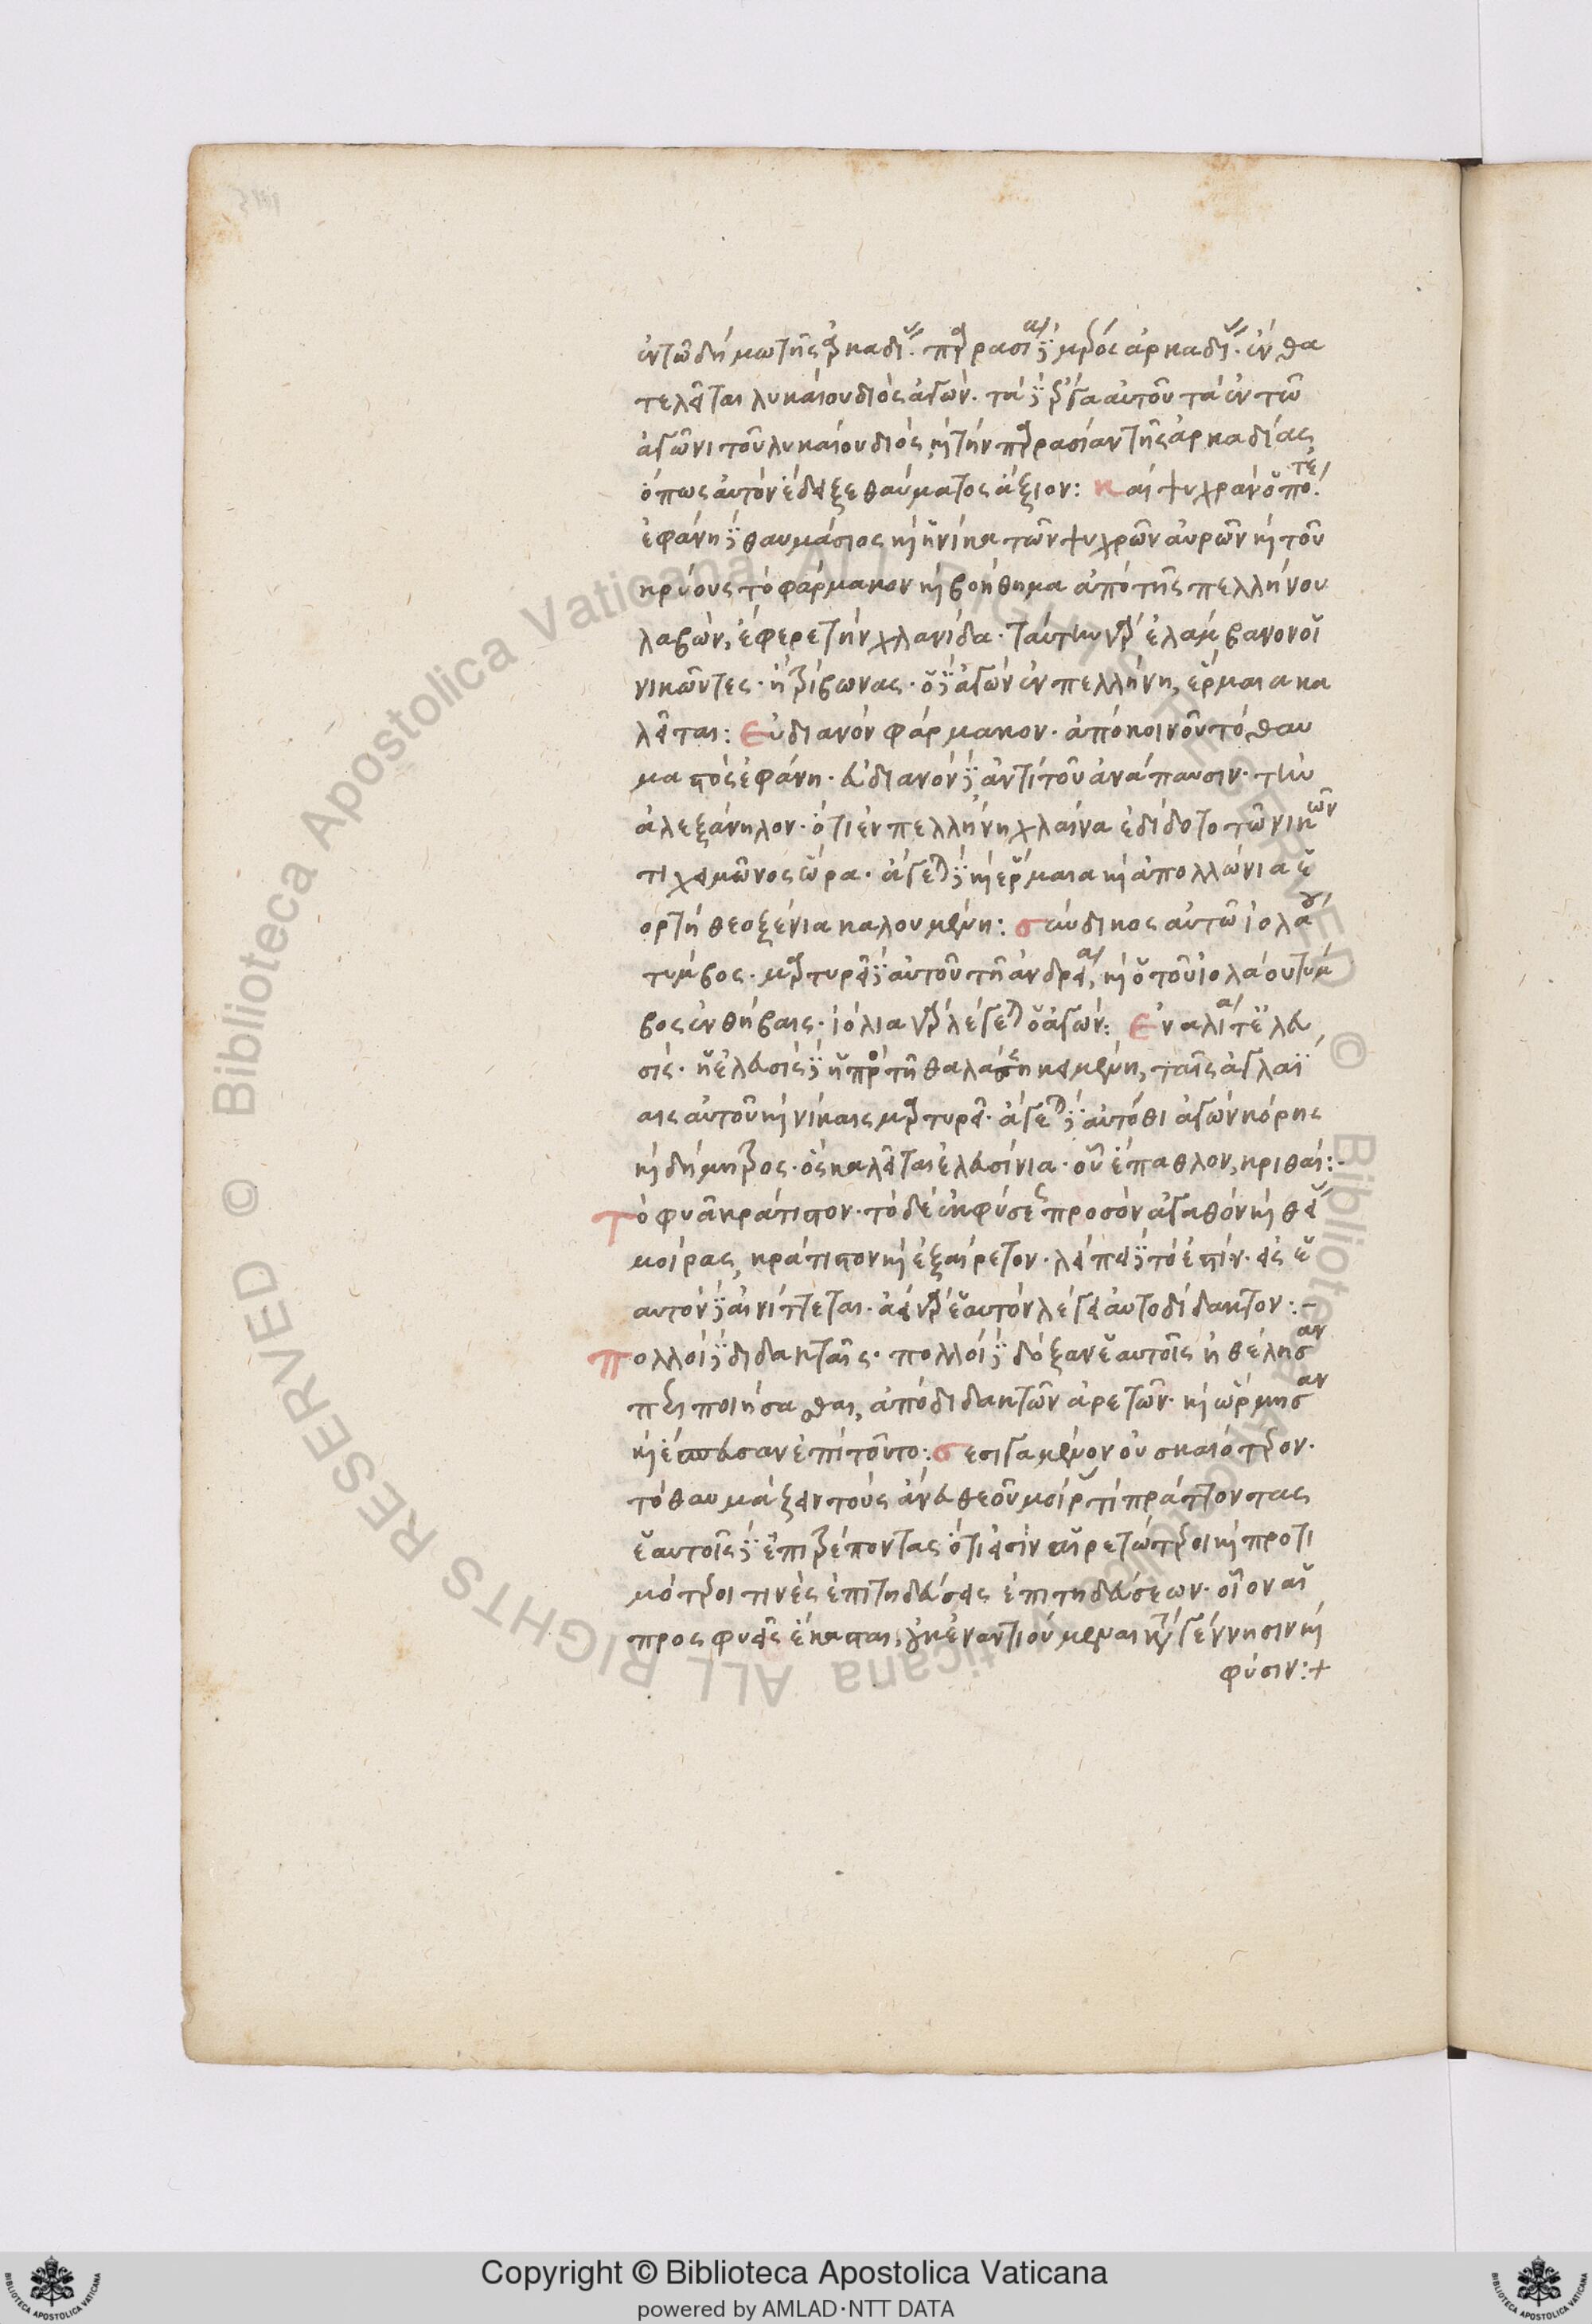 ἐν τῶ δήμω τῆς ἀρκαδίας. παρρασία δὲ μέρος ἀρκαδίας. ἔνθα
τελεῖται λυκαίου διὸς ἀγών. τὰ δὲ ἔργα αὐτοῦ τὰ ἐν τῶ
ἀγῶνι τοῦ λυκαίου διός, καὶ τὴν παρρασίαν τῆς ἀρκαδίας,
ὅπως αὐτὸν ἔδειξε θαύματος ἄξιον: καὶ ψυχρᾶν ὁπότε.
ἐφάνη δὲ θαυμάσιος καὶ ἡνίκα τῶν ψυχρῶν αὐρῶν καὶ τοῦ
κρύους τὸ φάρμακον καὶ βοήθημα ἀπὸ τῆς πελλήνου
λαβών, ἔφερε τὴν χλανίδα. ταύτην γὰρ ἐλάμβανον οἱ
νικῶντες. ἢ τρίβωνας. ὁ δὲ ἀγὼν ἐν πελλήνη, ἕρμαια κα
λεῖται: Εὐδιανὸν φάρμακον. ἀπὸ κοινοῦ τὸ, θαυ
μαστὸς ἐφάνη. εὐδιανὸν δὲ ἀντὶ τοῦ ἀνάπαυσιν. τὴν
ἀλεξάνηλον. ὅτι ἐν πελλήνη χλαῖνα ἐδίδοτο τῶ νικῶν
τι χειμῶνος ὥρα. ἄγεται δὲ καὶ ἕρμαια καὶ ἀπολλώνια ἑ
ορτὴ θεοξένια καλουμένη: σύνδικος αὐτῶ ἰολάου
τύμβος. μαρτυρεῖ δὲ αὐτοῦ τῆ ἀνδρεία, καὶ ὁ τοῦ ἰολάου τύμ
βος ἐν θήβαις. ἰόλια γὰρ λέγεται ὁ ἀγών: Εἰναλία τ' ἐλευ
σίς. ἡ ἐλευσὶς δὲ ἡ πρὸς τῆ θαλάσση κειμένη, ταῖς ἀγλαΐ
αις αὐτοῦ καὶ νίκαις μαρτυρεῖ. ἄγεται δὲ αὐτόθι ἀγὼν κόρης
καὶ δήμητρος. ὃς καλεῖται ἐλευσίνια. οὗ ἔπαθλον, κριθαί:-
Τὸ φυᾶ κράτιστον. τὸ δὲ ἐκ φύσεως προσὸν ἀγαθὸν καὶ θείας
μοίρας, κράτιστον καὶ ἐξαίρετον. λείπει δὲ τὸ ἐστίν. εἰς ἑ
αυτὸν δὲ αἰνίττεται. ἀεὶ γὰρ ἑαυτὸν λέγει αὐτοδίδακτον:-
Πολλοὶ δὲ διδακταῖς. πολλοὶ δὲ δόξαν ἑαυτοῖς ἠθέλησαν
περιποιήσασθαι, ἀπὸ διδακτῶν ἀρετῶν. καὶ ὥρμησαν
καὶ ἔσπευσαν ἐπὶ τοῦτο: σεσιγαμένον οὐ σκαιότερον.
τὸ θαυμάζειν τοὺς ἄνευ θεοῦ μοίρας τι πράττοντας
ἑαυτοῖς δὲ ἐπιτρέποντας ὅτι εἰσὶν αἱρετώτεροι καὶ προτι
μότεροι τινὲς ἐπιτηδεύσεις ἐπιτηδεύσεων. οἷον αἱ
προσφυεῖς ἑκάστω, οὐκ ἐναντιούμεναι κατὰ γέννησιν καὶ
φύσιν:+
Copyright © Biblioteca Apostolica Vaticana
powered by AMLAD·NTT DATA